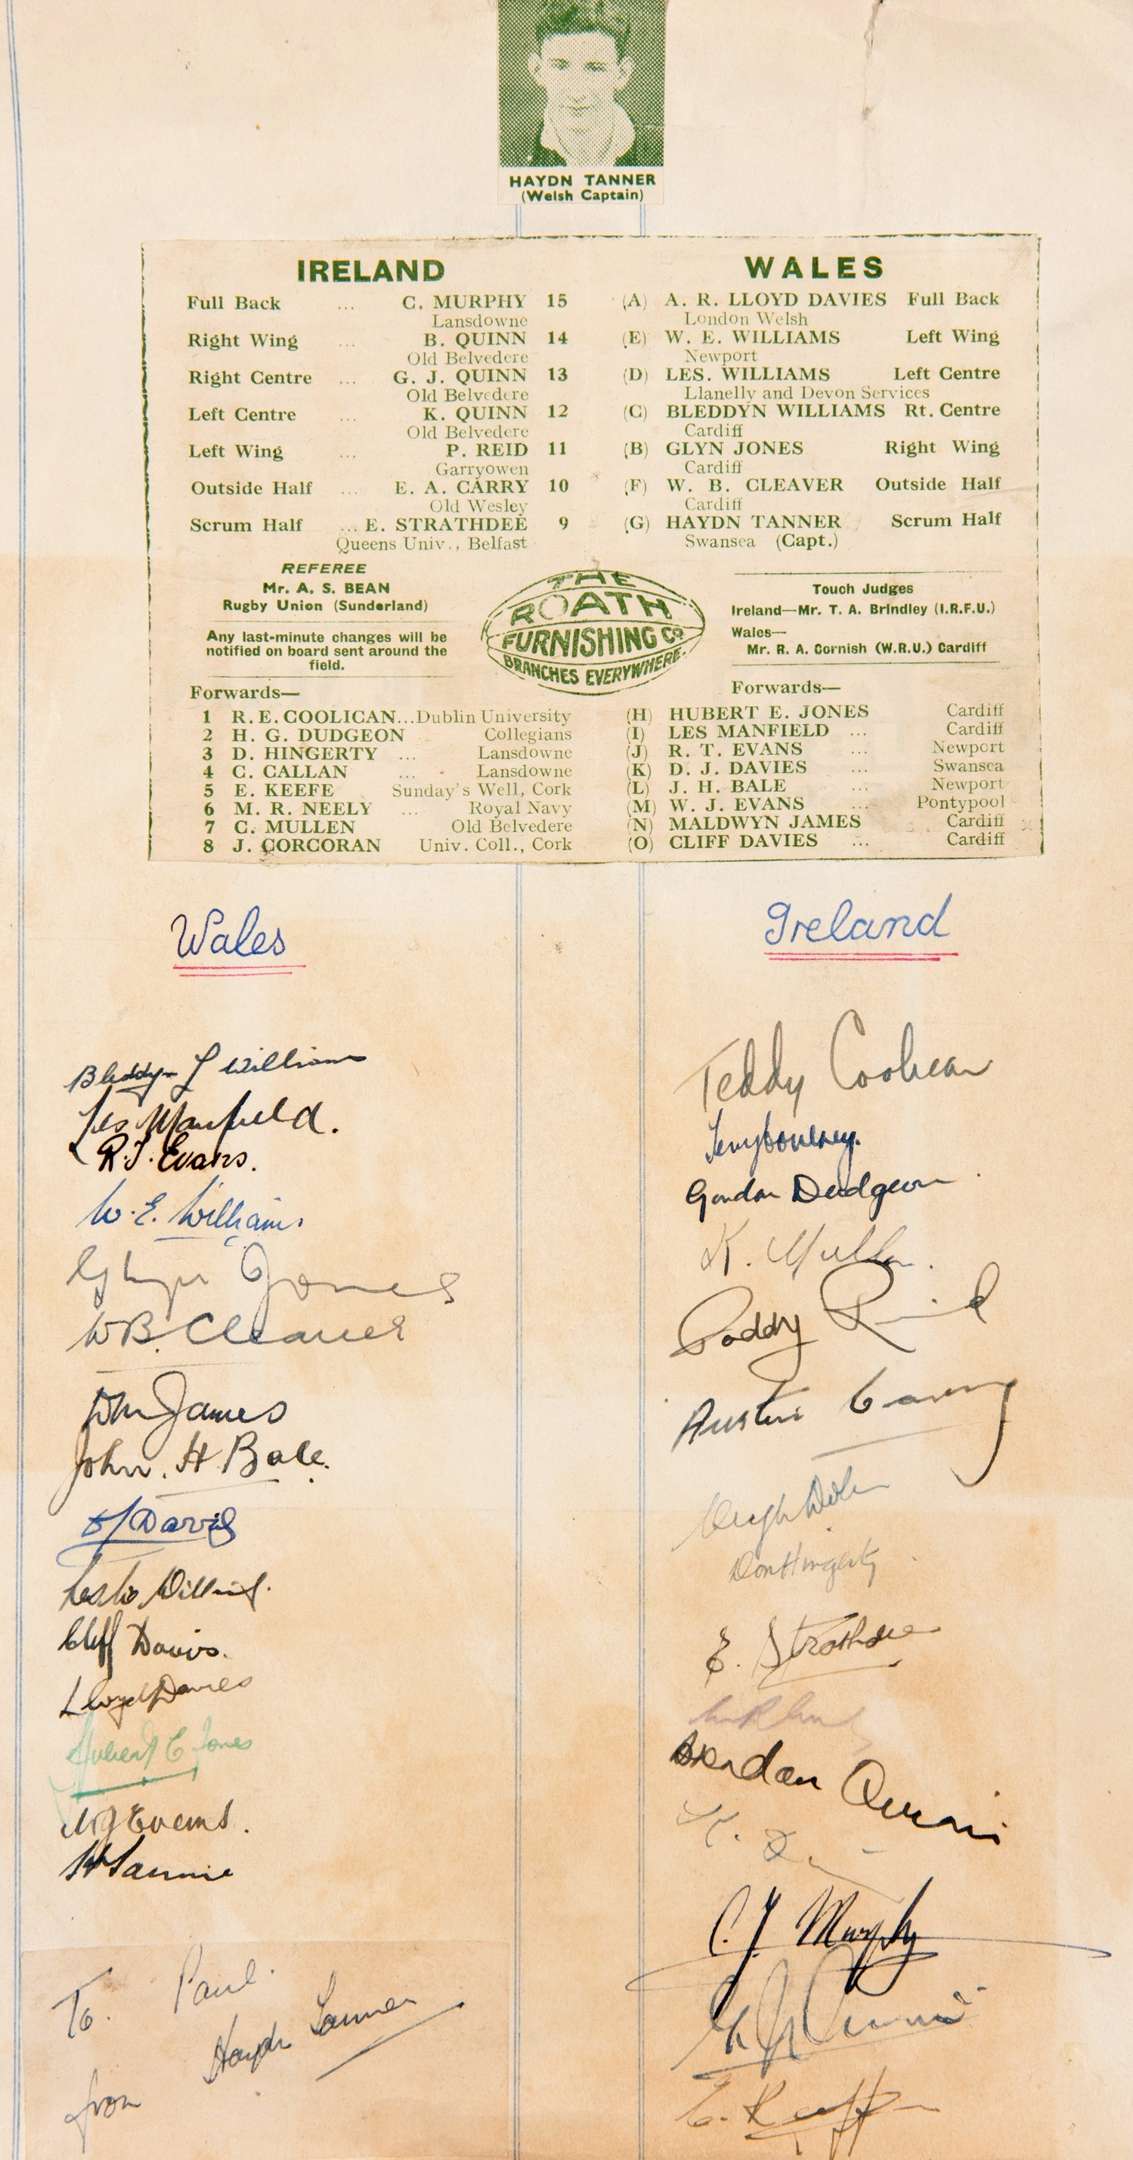 HAYDN TANNER
(Welsh Captain)
IRELAND
Full Back ... C. MURPHY 15
Lansdowne
Right Wing ... B. QUINN 14
Old Belvedere
Right Centre ... G. J. QUINN 13
Old Belvedere
Left Centre ... K. QUINN 12
Old Belvedere
Left Wing ... P. REID 11
Garryowen
Outside Half ... E. A. CARRY 10
Old Wesley
Scrum Half ... E. STRATHDEE 9
Queens Univ., Belfast
WALES
(A) A. R. LLOYD DAVIES Full Back
London Welsh
(E) W. E. WILLIAMS Left Wing
Newport
(D) LES. WILLIAMS Left Centre
Llanelly and Devon Services
(C) BLEDDYN WILLIAMS Rt. Centre
Cardiff
(B) GLYN JONES Right Wing
Cardiff
(F) W. B. CLEAVER Outside Half
Cardiff
(G) HAYDN TANNER Scrum Half
Swansea (Capt.)
REFEREE
Mr. A. S. BEAN
Rugby Union (Sunderland)
Any last-minute changes will be
notified on board sent around the
field.
THE
ROATH
FURNISHING Co
BRANCHES EVERYWHERE.
Touch Judges
Ireland—Mr. T. A. Brindley (I.R.F.U.)
Wales—
Mr. R. A. Cornish (W.R.U.) Cardiff
Forwards—
1 R. E. COOLICAN...Dublin University
2 H. G. DUDGEON Collegians
3 D. HINGERTY ... Lansdowne
4 C. CALLAN ... Lansdowne
5 E. KEEFE Sunday's Well, Cork
6 M. R. NEELY ... Royal Navy
7 C. MULLEN Old Belvedere
8 J. CORCORAN Univ. Coll., Cork
Forwards—
(H) HUBERT E. JONES Cardiff
(I) LES MANFIELD ... Cardiff
(J) R. T. EVANS ... Newport
(K) D. J. DAVIES ... Swansea
(L) J. H. BALE ... Newport
(M) W. J. EVANS ... Pontypool
(N) MALDWYN JAMES Cardiff
(O) CLIFF DAVIES ... Cardiff
Wales
Bleddyn L Williams
Les Manfield.
R.T. Evans.
W.E. Williams.
Glyn Jones
WB. Cleaver
DM James
John. H. Bale.
DJ Davis
Leslie Williams.
Cliff Davies.
Lloyd Davies
Hubert E Jones
WJ Evans.
H Tanner
To. Paul.
from Haydn Tanner
Ireland
Teddy Coolican
Gordon Dudgeon
K. Mullen.
Paddy Reid
Austin Carry
Don Hingerty
E. Strathdee
Brendan Quinn
K.
C. J. Murphy
G J Quinn
E. Keeffe